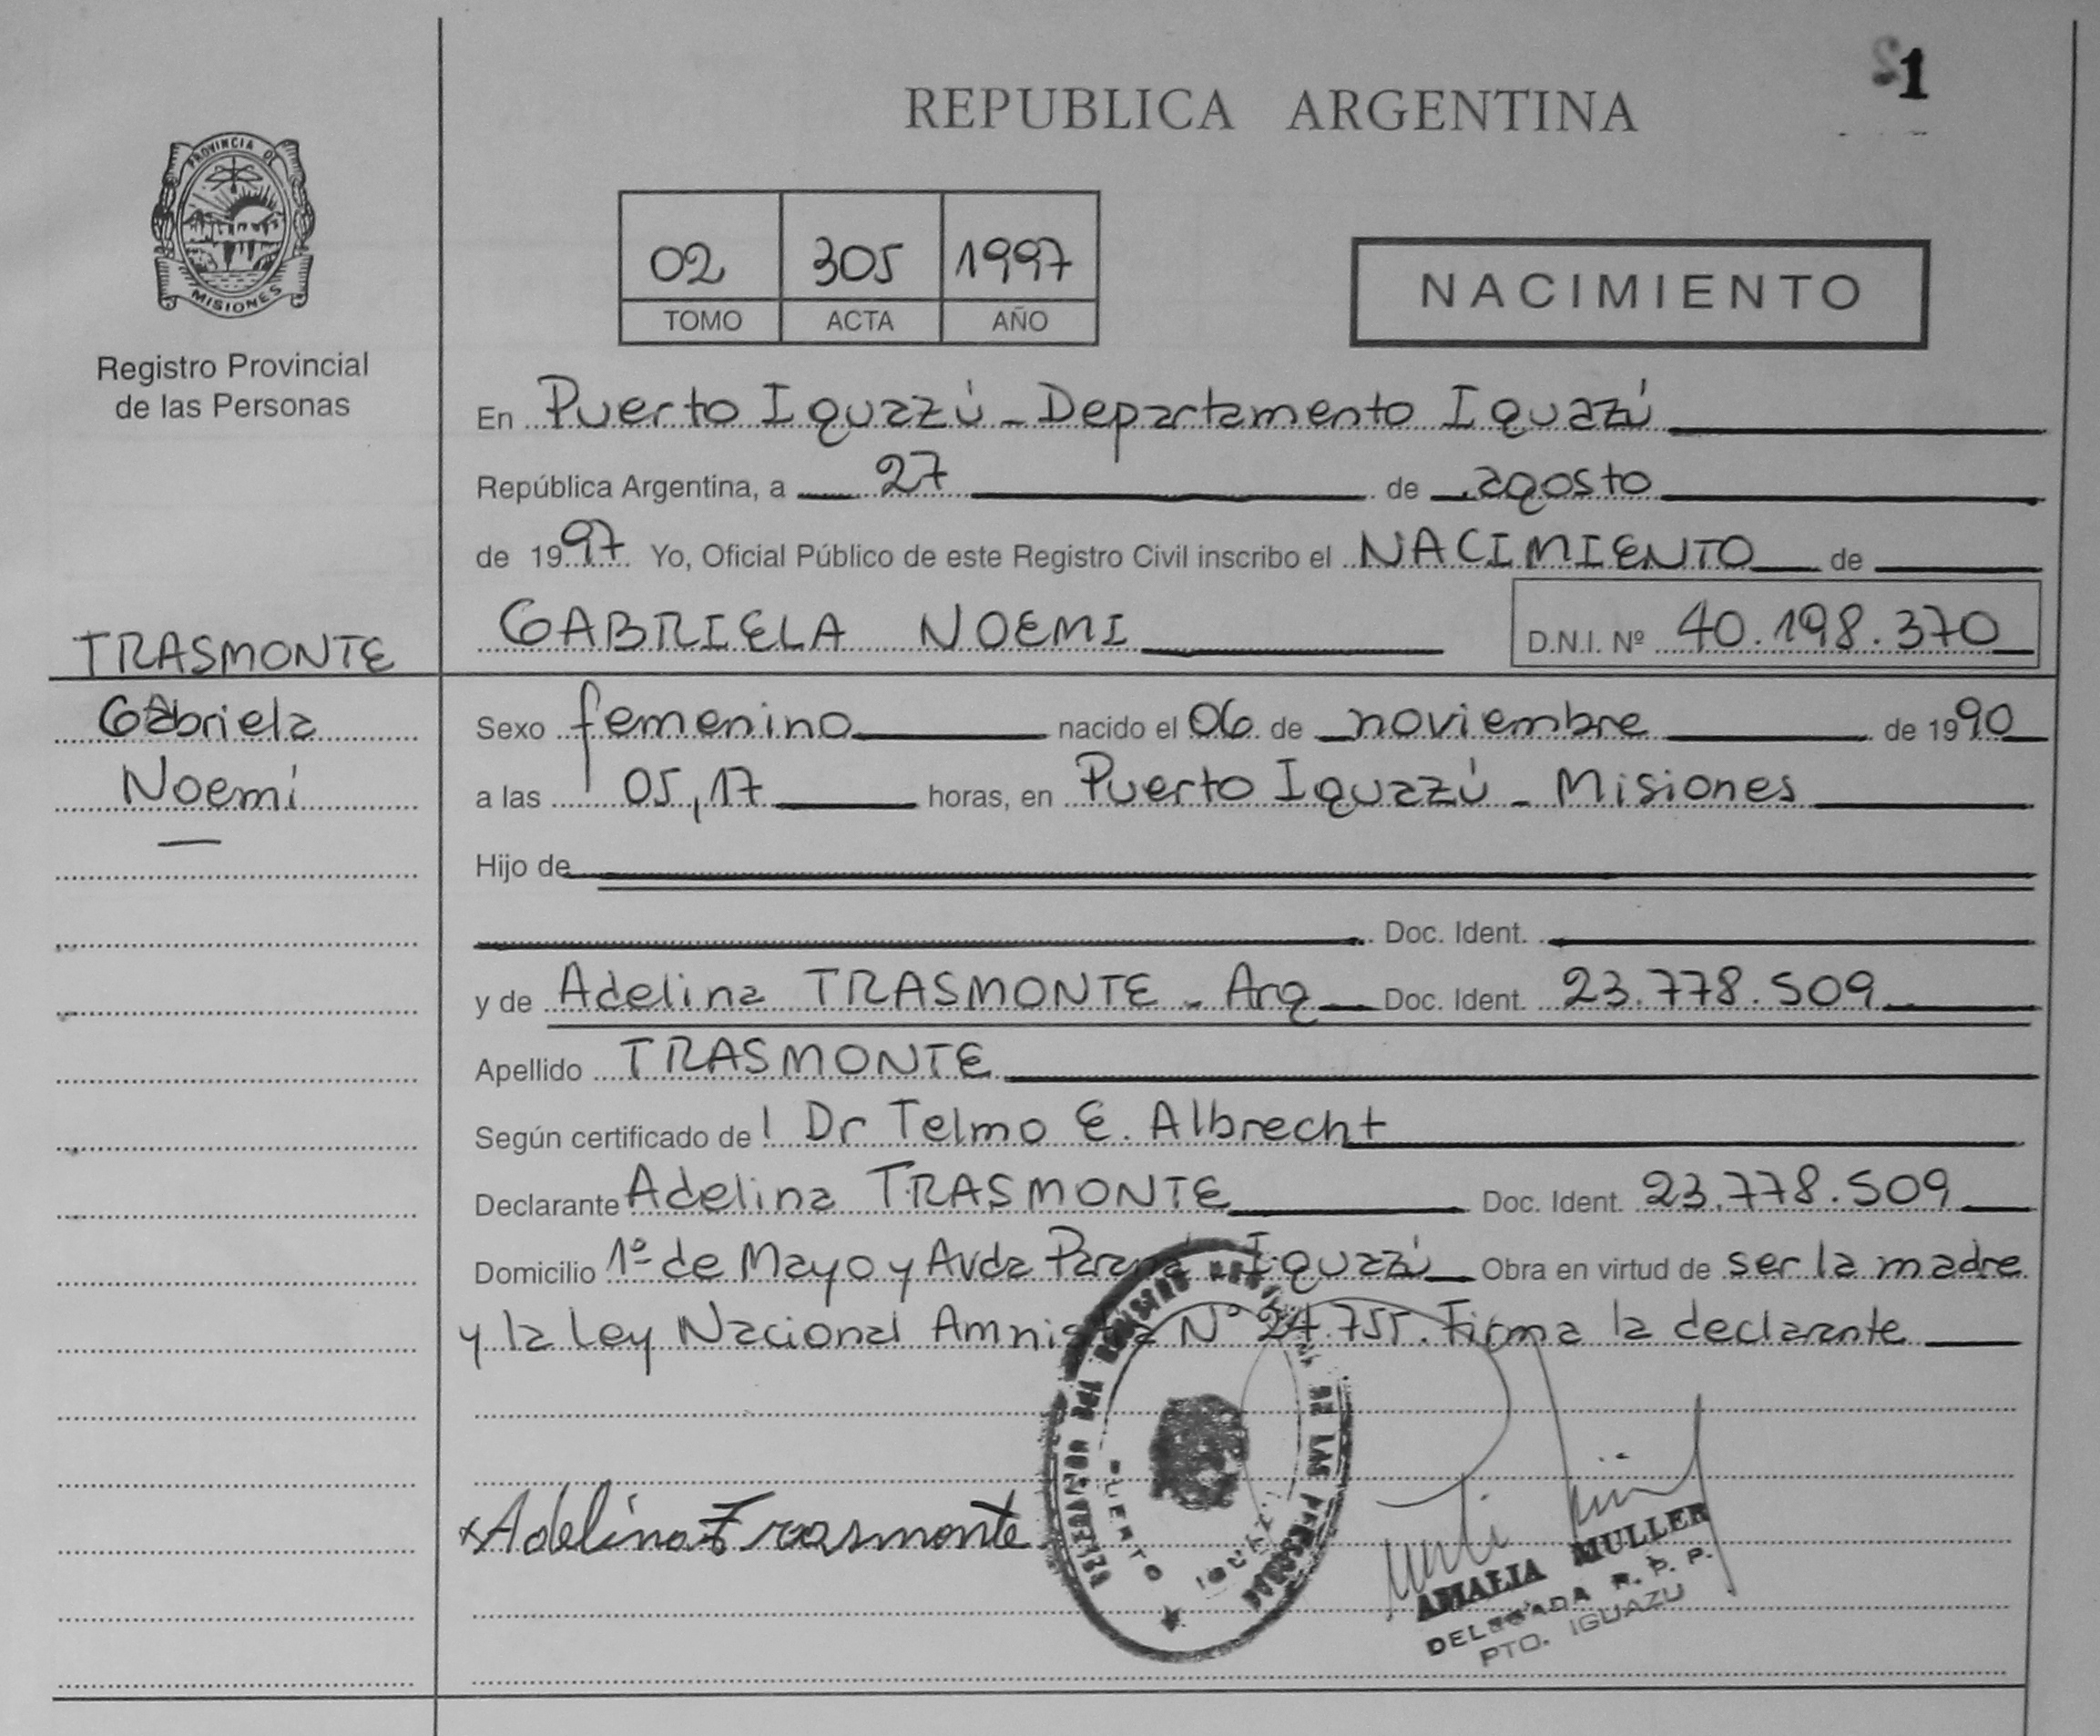 1
REPUBLICA ARGENTINA
PROVINCIA DE
MISIONES
Registro Provincial
de las Personas
02 305 1997
TOMO ACTA AÑO
NACIMIENTO
En Puerto Iguazú - Departamento Iguazú
República Argentina, a 27 de agosto
de 1997 Yo, Oficial Público de este Registro Civil inscribo el NACIMIENTO de
GABRIELA NOEMI D.N.I. Nº 40.198.370
TRASMONTE
Gabriela
Noemí
Sexo femenino nacido el 06 de noviembre de 1990
a las 05,17 horas, en Puerto Iguazú - Misiones
Hijo de
Doc. Ident.
y de Adelina TRASMONTE - Arg Doc. Ident. 23.778.509
Apellido TRASMONTE
Según certificado de l Dr Telmo E. Albrecht
Declarante Adelina TRASMONTE Doc. Ident. 23.778.509
Domicilio 1º de Mayo y Avda Paraná Iguazú Obra en virtud de ser la madre
y la Ley Nacional Amnistía Nº 24.755. Firma la declarante
Adelina Trasmonte
DE LAS PERSONAS
PUERTO IGUAZU
AMALIA MULLER
DELEGADA R. P. P.
PTO. IGUAZU